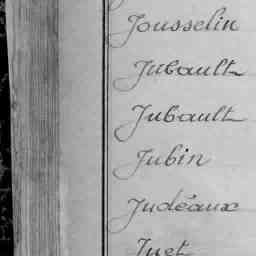 Jousselin
Jubault
Jubault
Jubin
Judéaux
Juet